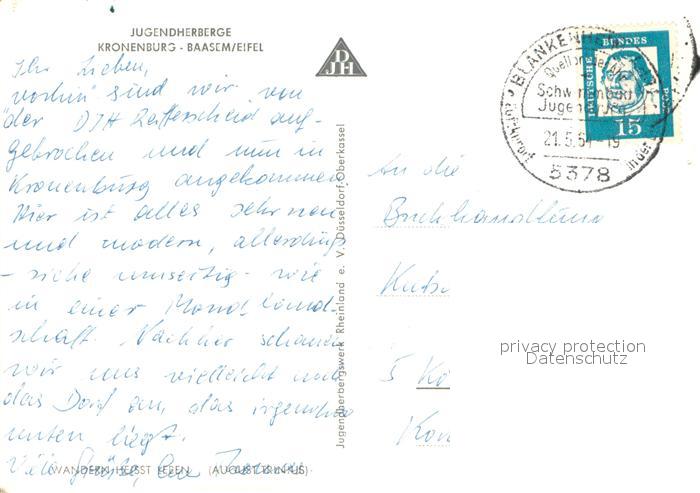 JUGENDHERBERGE
KRONENBURG - BAASEM/EIFEL
DJH
Ihr Lieben,
vorhin sind wir von
der DJH Reifferscheid auf-
gebrochen und nun in
Kronenburg angekommen.
Hier ist alles sehr neu
und modern, allerdings
- siehe umseitig - wie
in einer Mondland-
schaft. Nachher schauen
wir uns vielleicht noch
das Dorf an, das irgendwo
unten liegt.
Viele Grüße,
WANDERN HEISST LEBEN (AUGUST TRINIUS)
Jugendherbergswerk Rheinland e. V. Düsseldorf-Oberkassel
BLANKENHEIM
Quellort der Ahr
Schwimmbad
Jugend
Luftkurort in der
21.5.6 - 19
5378
DEUTSCHE BUNDESPOST
15
An die
Buchhandlung
5 Kö
privacy protection
Datenschutz